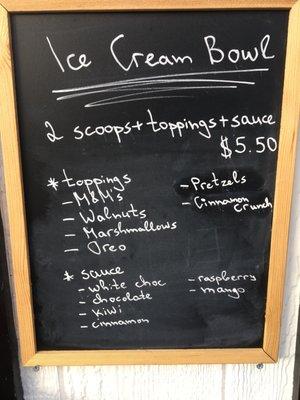 Ice Cream Bowl
2 scoops+toppings+sauce
$5.50
* toppings
- M&M's
- Walnuts
- Marshmallows
- Oreo
- Pretzels
- Cinnamon Crunch
* sauce
- white choc
- chocolate
- kiwi
- cinnamon
- raspberry
- mango